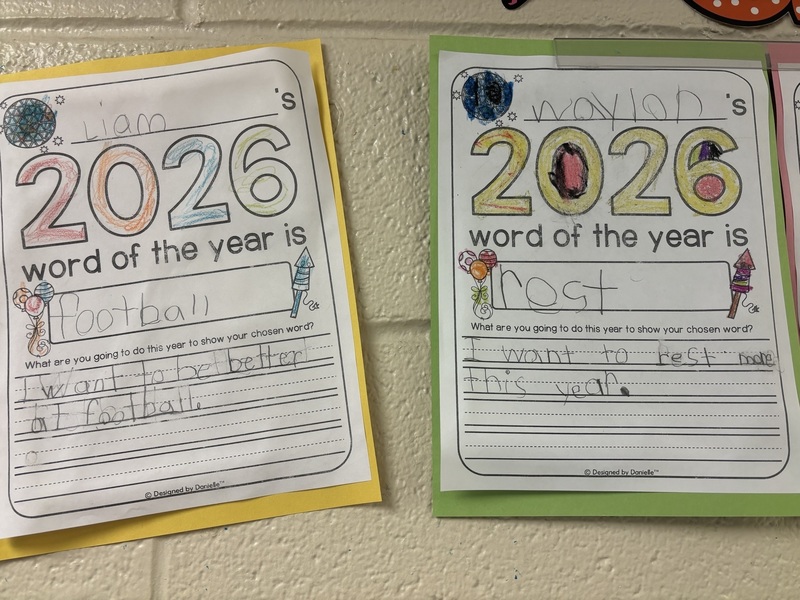 Liam 's
2026
word of the year is
football
What are you going to do this year to show your chosen word?
I want to be better
at football.
© Designed by Danielle™
Waylon 's
2026
word of the year is
rest
What are you going to do this year to show your chosen word?
I want to rest more
this year.
© Designed by Danielle™